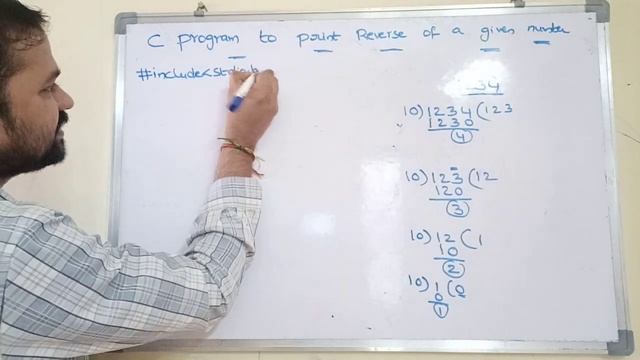 C program to print Reverse of a given number
#include<stdio.h
34
10)1234(123
1230
4
10)123(12
120
3
10)12(1
10
2
10)1(0
0
1